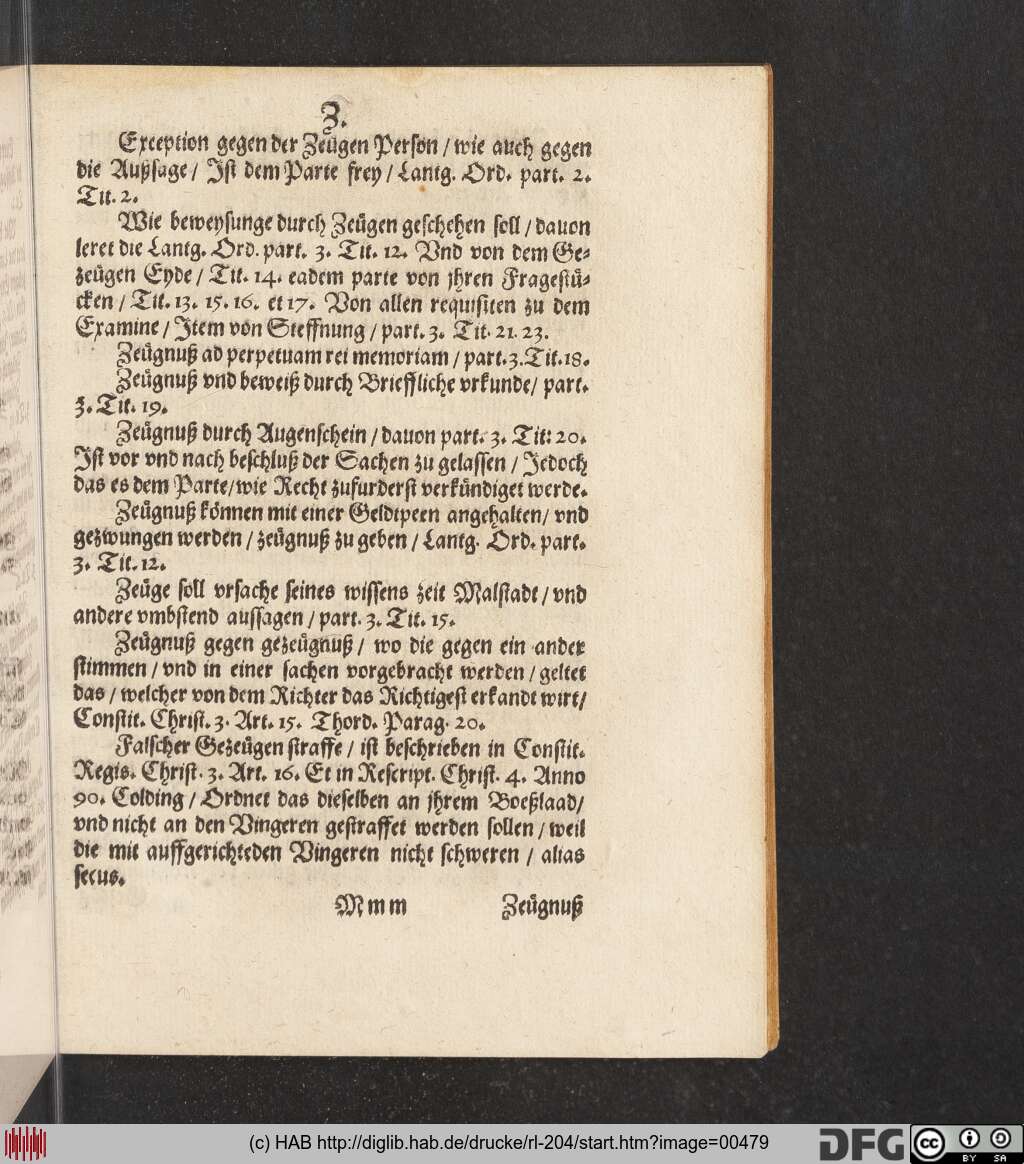 Z.
Exception gegen der Zeügen Person / wie auch gegen
die Außsage / Ist dem Parte frey / Lantg. Ord. part. 2.
Tit. 2.
Wie beweysunge durch Zeügen geschehen soll / dauon
leret die Lantg. Ord. part. 3. Tit. 12. Vnd von dem Ge-
zeügen Eyde / Tit. 14. eadem parte von jhren Fragestü-
cken / Tit. 13. 15. 16. et 17. Von allen requisiten zu dem
Examine / Item von Steffnung / part. 3. Tit. 21. 23.
Zeügnuß ad perpetuam rei memoriam / part. 3. Tit. 18.
Zeügnuß vnd beweiß durch Brieffliche vrkunde / part.
3. Tit. 19.
Zeügnuß durch Augenschein / dauon part. 3. Tit: 20.
Ist vor vnd nach beschluß der Sachen zu gelassen / Jedoch
das es dem Parte / wie Recht zufurderst verkündiget werde.
Zeügnuß können mit einer Geldtpeen angehalten / vnd
gezwungen werden / zeügnuß zu geben / Lantg. Ord. part.
3. Tit. 12.
Zeüge soll vrsache seines wissens zeit Malstadt / vnd
andere vmbstend aussagen / part. 3. Tit. 15.
Zeügnuß gegen gezeügnuß / wo die gegen ein ander
stimmen / vnd in einer sachen vorgebracht werden / geltet
das / welcher von dem Richter das Richtigest erkandt wirt /
Constit. Christ. 3. Art. 15. Thord. Parag. 20.
Falscher Gezeügen straffe / ist beschrieben in Constit.
Regis. Christ. 3. Art. 16. Et in Rescript. Christ. 4. Anno
90. Colding / Ordnet das dieselben an jhrem Boeßlaad /
vnd nicht an den Vingeren gestraffet werden sollen / weil
die mit auffgerichteden Vingeren nicht schweren / alias
secus.
Mmm Zeügnuß
(c) HAB http://diglib.hab.de/drucke/rl-204/start.htm?image=00479
DFG
cc BY SA